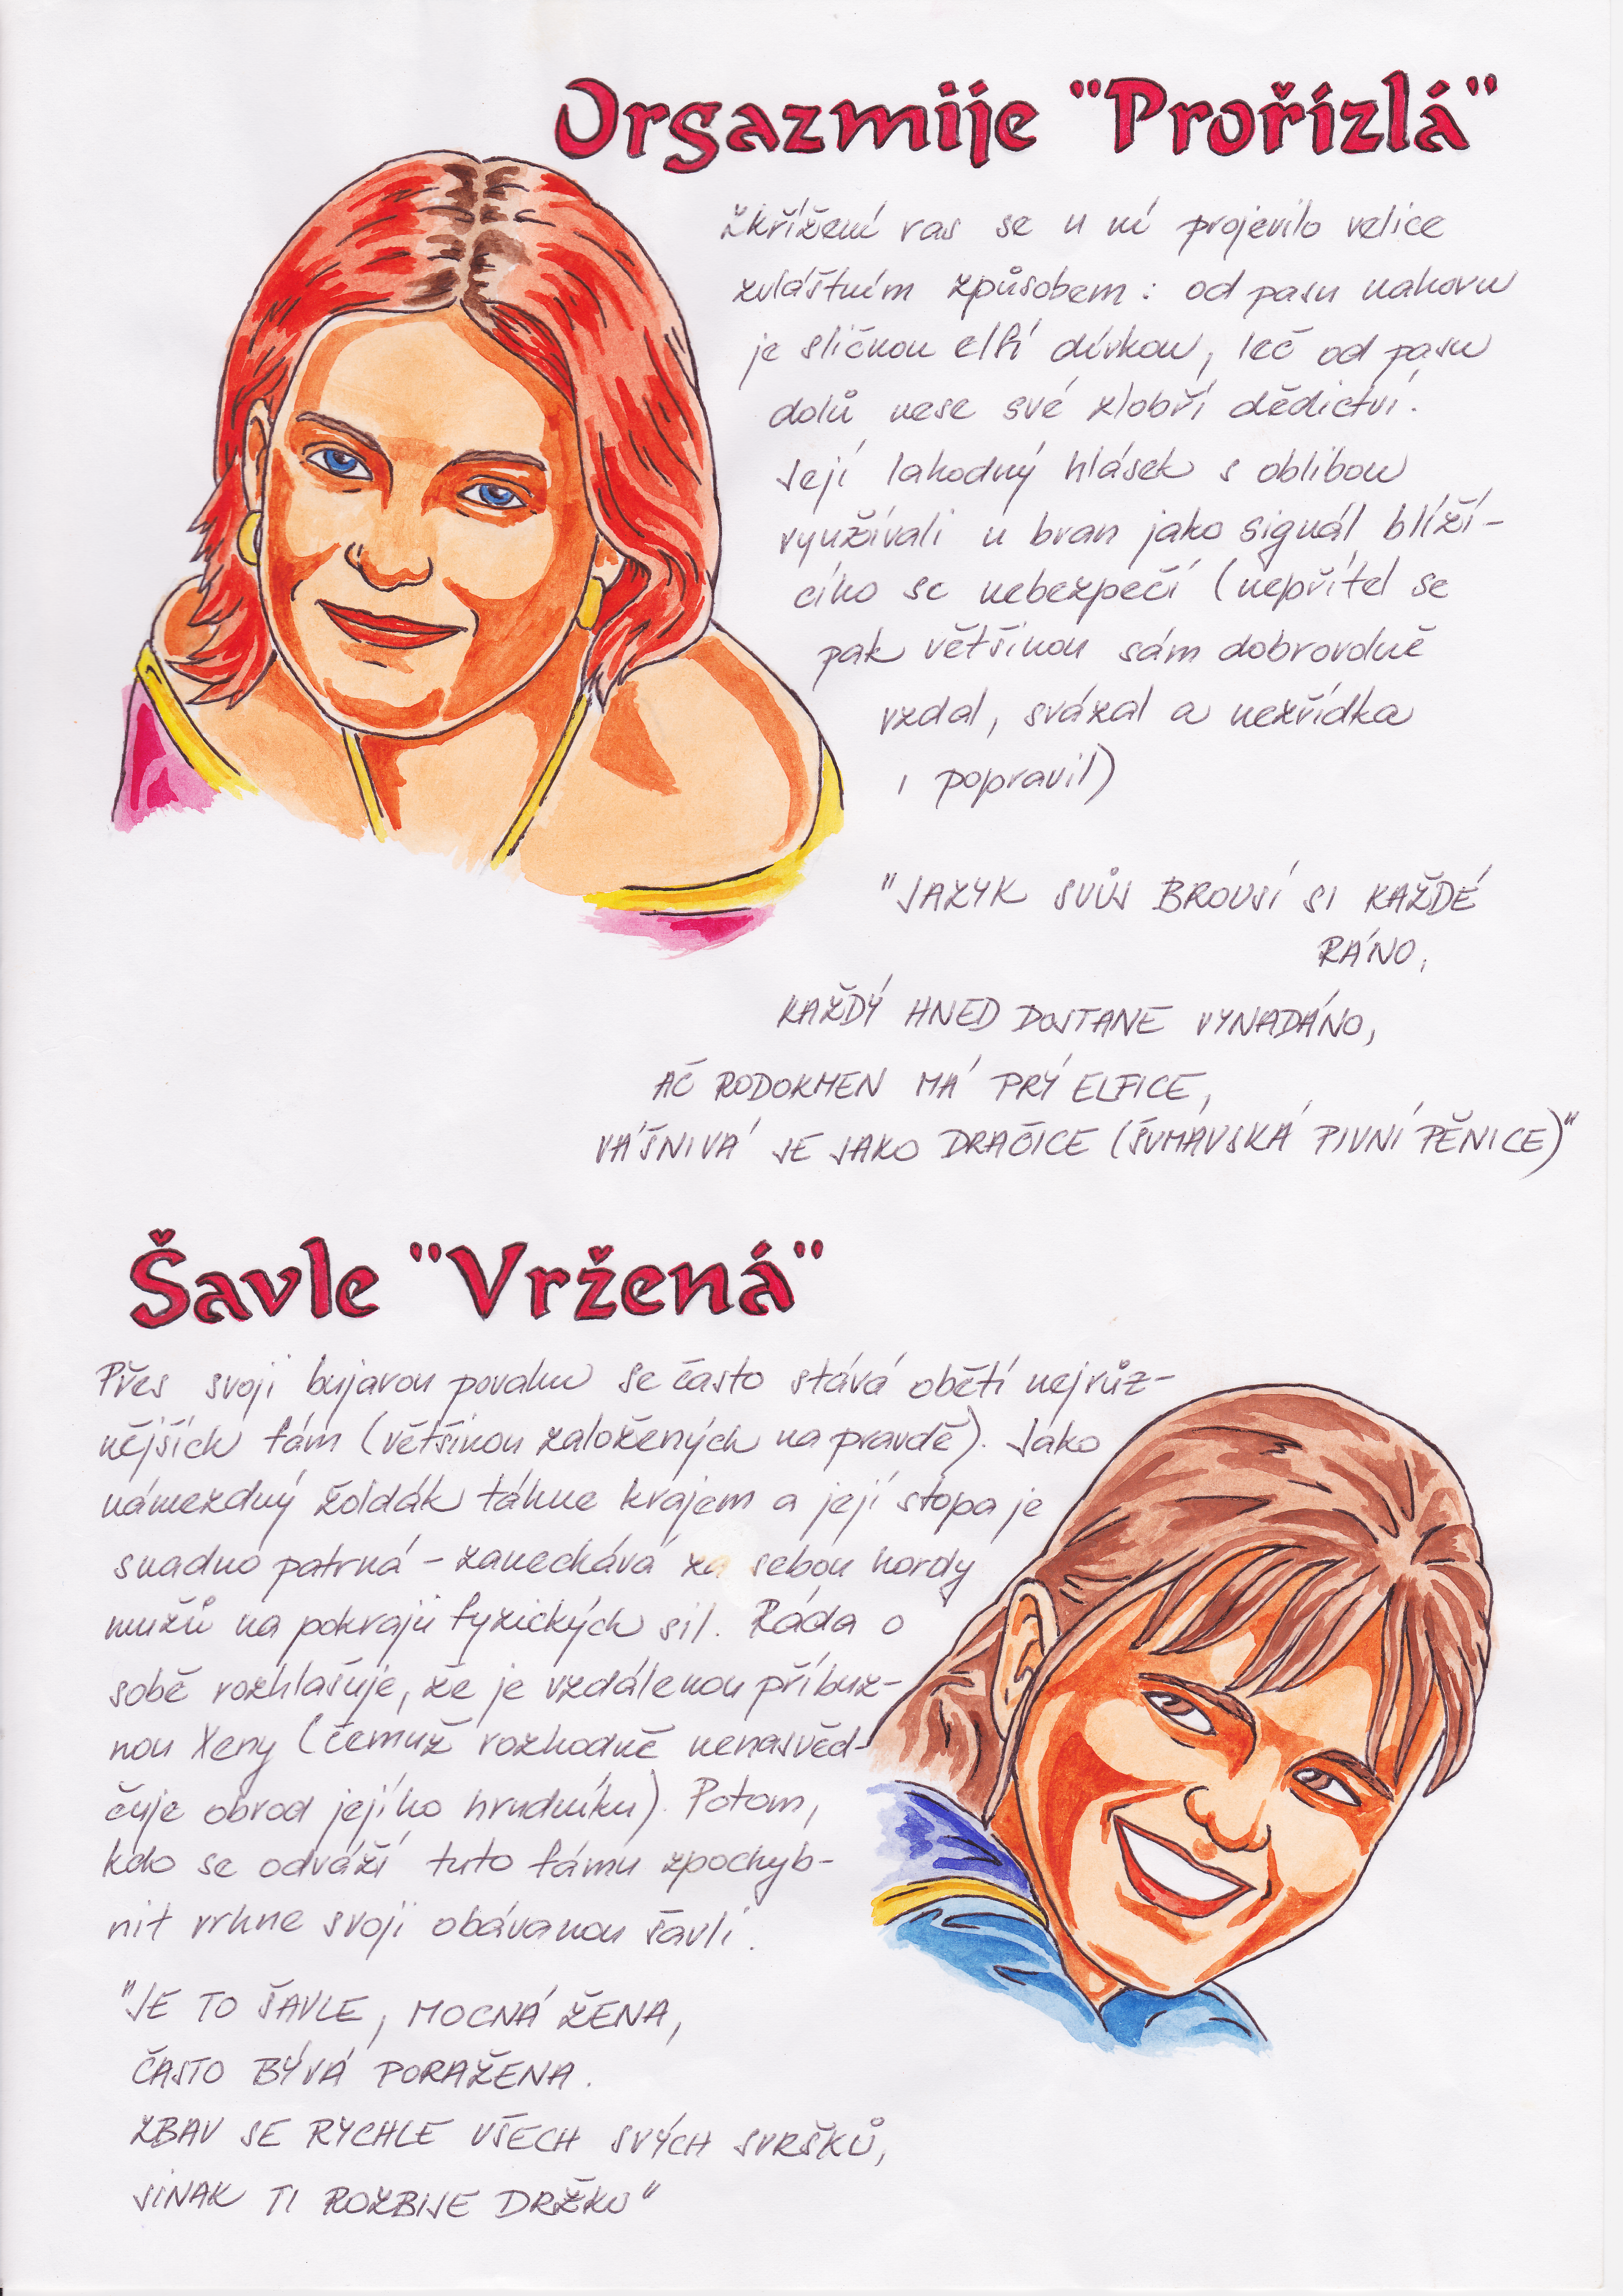 Orgazmije "Prořízlá"
Zkřížení ras se u ní projevilo velice
zvláštním způsobem: od pasu nahoru
je sličnou elfí dívkou, leč od pasu
dolů nese své zlobří dědictví.
Její lahodný hlásek s oblibou
využívali u bran jako signál blíží-
cího se nebezpečí (nepřítel se
pak většinou sám dobrovolně
vzdal, svázal a nezřídka
i popravil)
"JAZYK SVŮJ BROUSÍ SI KAŽDÉ
RÁNO,
KAŽDÝ HNED DOSTANE VYNADÁNO,
AČ RODOKMEN MÁ PRÝ ELFICE,
VÁŠNIVÁ JE JAKO DRAČICE (ŠUMAVSKÁ PIVNÍ PĚNICE)"
Šavle "Vržená"
Přes svoji bujarou povahu se často stává obětí nejrůz-
nějších fám (většinou založených na pravdě). Jako
námezdný žoldák táhne krajem a její stopa je
snadno patrná - zanechává za sebou hordy
mužů na pokraji fyzických sil. Ráda o
sobě rozhlašuje, že je vzdálenou příbuz-
nou Xeny (čemuž rozhodně nenasvěd-
čuje obvod jejího hrudníku). Potom,
kdo se odváží tuto fámu zpochyb-
nit vrhne svoji obávanou šavli.
"JE TO ŠAVLE, MOCNÁ ŽENA,
ČASTO BÝVÁ PORAŽENA.
ZBAV SE RYCHLE VŠECH SVÝCH SVRŠKŮ,
JINAK TI ROZBIJE DRŽKU"